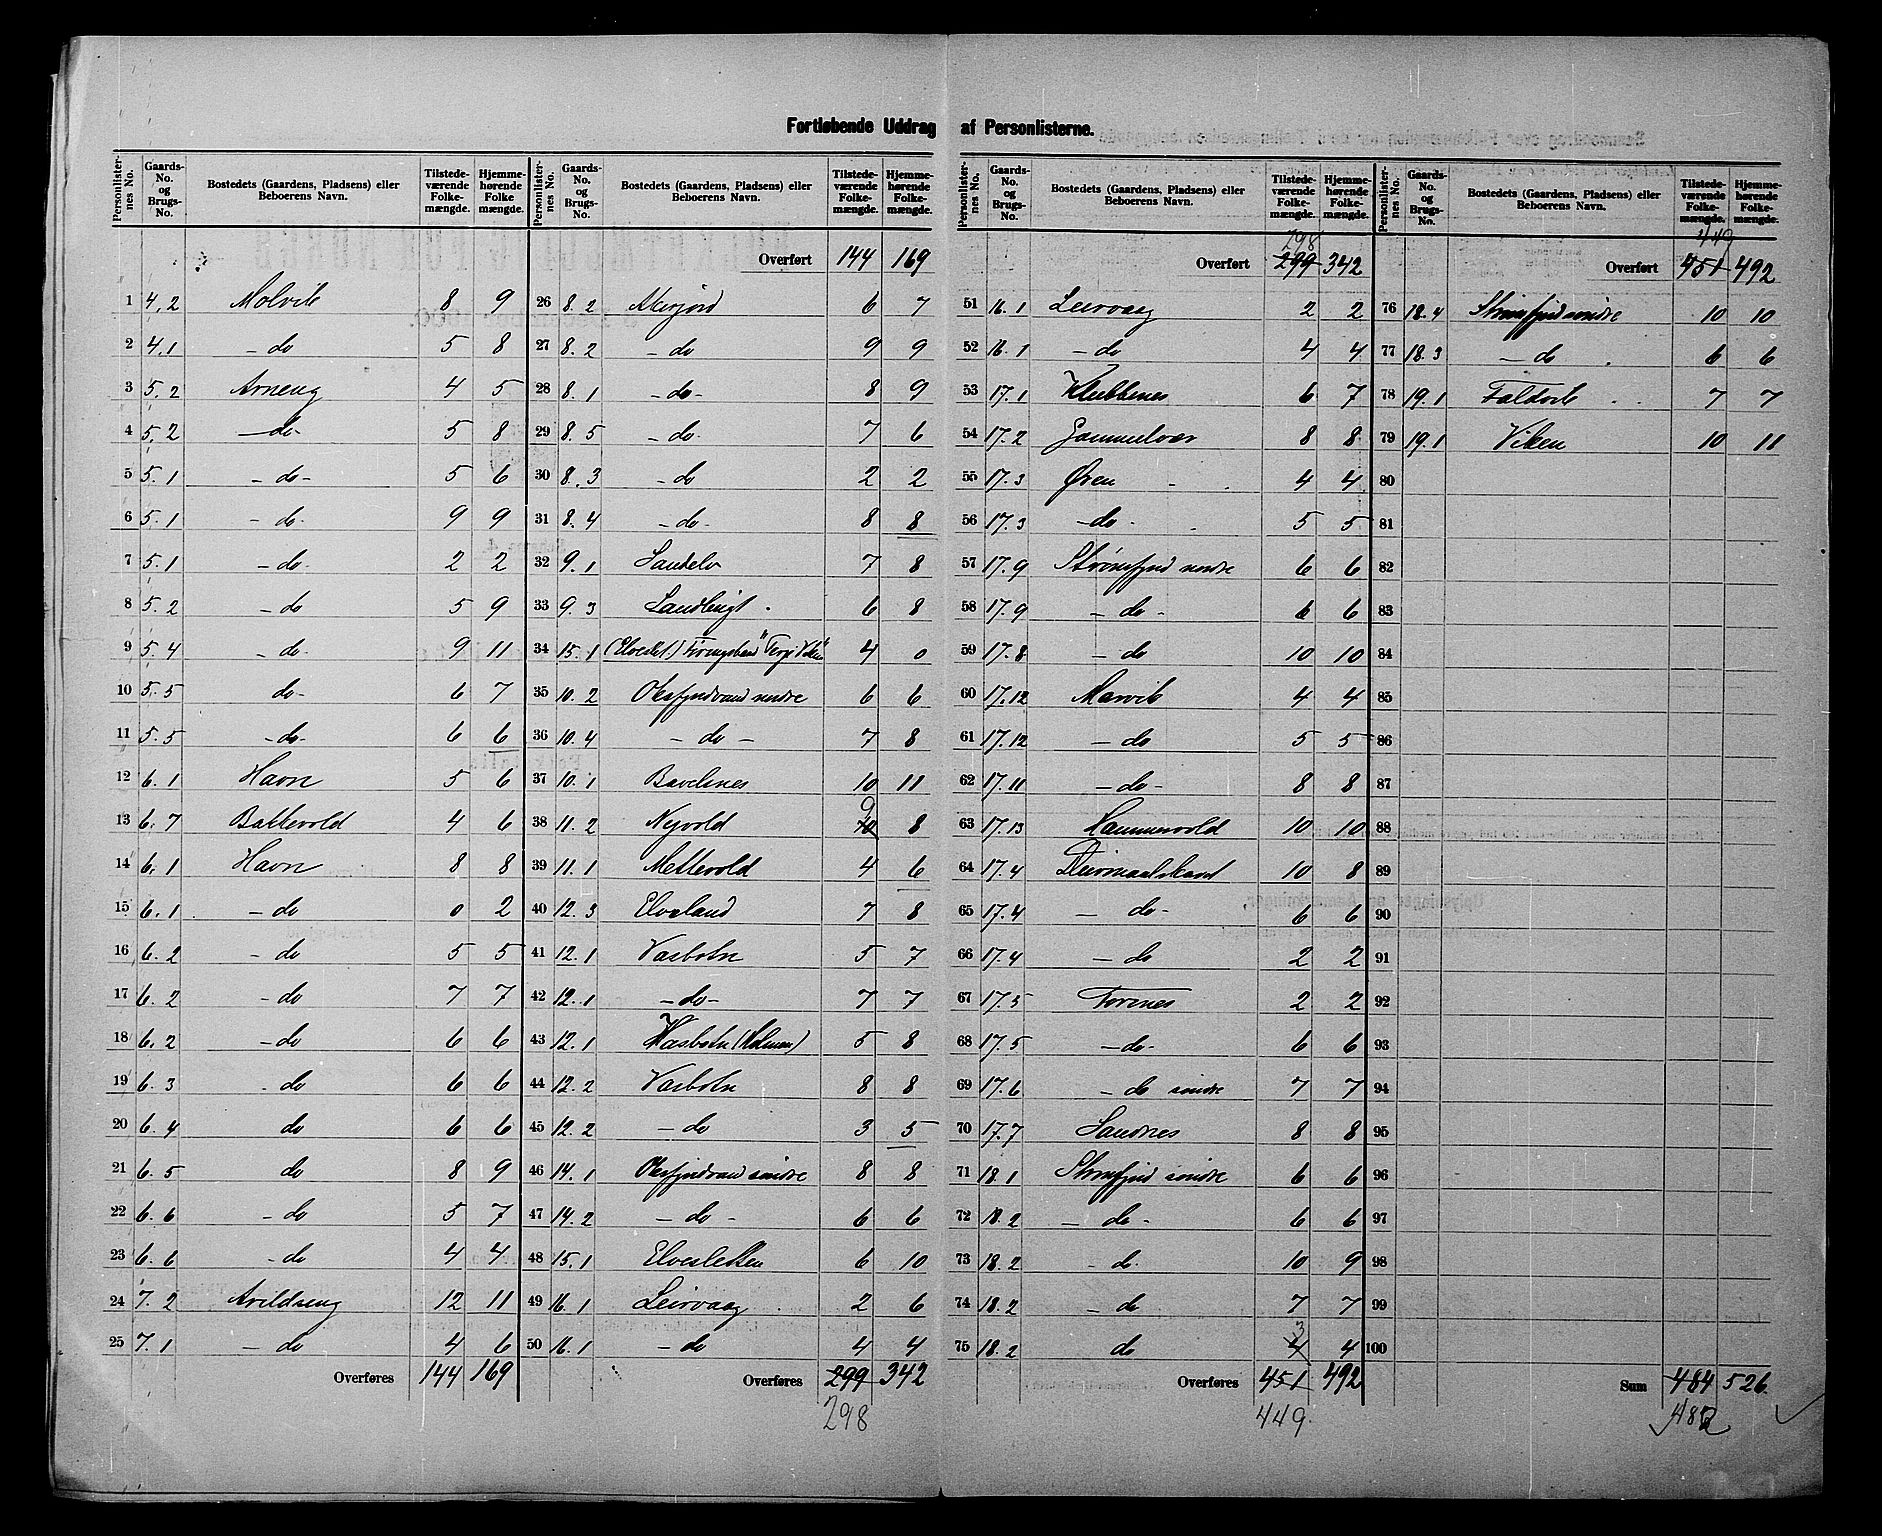 Fortløbende Uddrag af Personlisterne.
Personlister-nes No. | Gaards-No. og Brugs-No. | Bostedets (Gaardens, Pladsens) eller Beboerens Navn. | Tilstede-værende Folke-mængde. | Hjemme-hørende Folke mængde.
1 4,2 Molvik 8 9
2 4,1 - do 5 8
3 5.2 Arneng 4 5
4 5.2 - do- 5 8
5 5.1 - do - 5 6
6 5.1 - do- 9 9
7 5.1 - do- 2 2
8 5.2 - do 5 9
9 5.4 - do- 9 11
10 5.5 do- 6 7
11 5.5 - do- 6 6
12 6.1 Havn 5 6
13 6.7 Bakkevold 4 6
14 6.1 Havn 8 8
15 6.1 - do 0 2
16 6.2 - do 5 5
17 6.2 - do 7 7
18 6.2 - do 6 6
19 6.3 - do 6 6
20 6.4 do 6 6
21 6.5 do 8 9
22 6.6 - do 5 7
23 6.6 - do 4 4
24 7.2 Avildseng 12 11
25 7.1 - do 4 6
Overføres 144 169
Personlister-nes No. | Gaards-No. og Brugs-No. | Bostedets (Gaardens, Pladsens) eller Beboerens Navn. | Tilstede-værende Folke-mængde. | Hjemme-hørende Folke-mængde.
Overført 144 169
26 8.2 Akerjord 6 7
27 8.2 - do 9 9
28 8.1 - do- 8 9
29 8.5 - do- 7 6
30 8.3 - do 2 2
31 8.4 - do- 8 8
32 9.1 Sandelv 7 8
33 9.3 6 8
34 15.1 4 0
35 10.2 Oksfjordvand nordre 6 6
36 10.4 - do - 7 8
37 10.1 10 11
38 11.2 Nyvold 10 9 8
39 11.1 Mettevold 4 6
40 12.3 Elveland 7 8
41 12.1 Vasbotn 5 7
42 12.1 - do- 7 7
43 12.1 Vasbotn (Holmen) 5 8
44 12.2 Vasbotn 8 8
45 12.2 - do 3 5
46 14.1 Oksfjordvand søndre 8 8
47 14.2 - do - 6 6
48 15.1 Elvesletten 6 10
49 16.1 Leirvaag 2 6
50 16.1 - do 4 4
Overføres 299 342
298
Personlister-nes No. | Gaards-No. og Brugs-No. | Bostedets (Gaardens, Pladsens) eller Beboerens Navn. | Tilstede-værende Folke-mængde. | Hjemme-hørende Folke-mængde.
298
Overført 299 342
51 16.1 Leirvaag 2 2
52 16.1 - do 4 4
53 17.1 Klubbenes 6 7
54 17.2 Gammelvær 8 8
55 17.3 Øren 4 4
56 17.3 - do - 5 5
57 17.9 Strømfjord nordre 6 6
58 17.9 - do - 6 6
59 17.8 - do 10 10
60 17.12 Marvik 4 4
61 17.12 - do 5 5
62 17.11 - do - 8 8
63 17.13 Hammervold 10 10
64 17.4 10 8
65 17.4 - do- 6 6
66 17.4 - do 2 2
67 17.5 Tornes 2 2
68 17.5 - do- 6 6
69 17.6 - do søndre 7 7
70 17.7 Sandnes 8 8
71 18.1 Strømfjord søndre 6 6
72 18.2 - do - 6 6
73 18.2 - do. 10 9
74 18.2 - do 7 7
75 18.2 do 4 3 4
Overføres 451 492
449.
Personlister-nes No. | Gaards-No. og Brugs-No. | Bostedets (Gaardens, Pladsens) eller Beboerens Navn. | Tilstede-værende Folke-mængde. | Hjemme-hørende Folke-mængde.
449
Overført 451 492
76 18.4 Strømfjord søndre 10 10
77 18.3 - do 6 6
78 19.1 Faltvik 7 7
79 19.1 Viken 10 11
80
81
82
83
84
85
86
87
88
89
90
91
92
93
94
95
96
97
98
99
100
Sum 484 526.
482